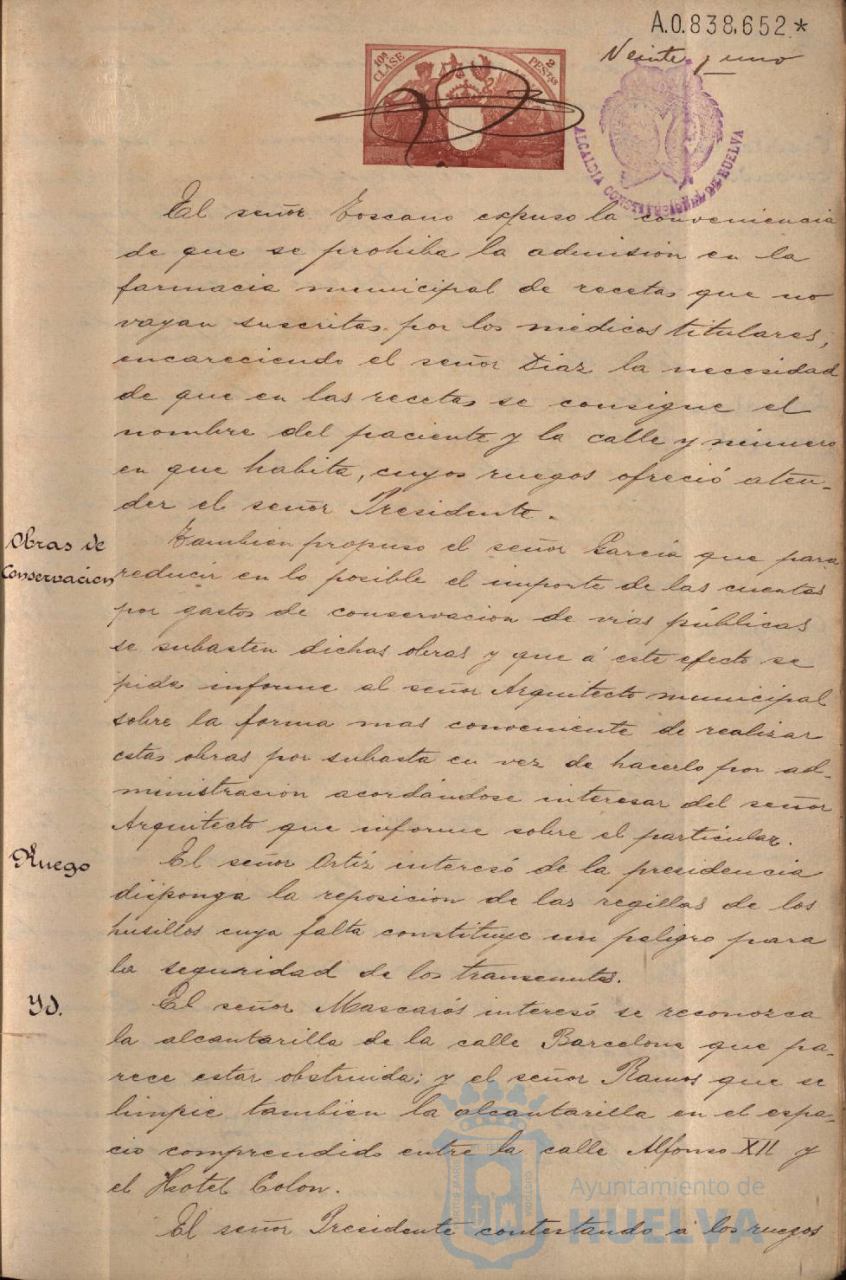 A.0.838,652*
Veinte y uno
10ª CLASE
2 PESTAS
ALCALDIA CONSTITUCIONAL DE HUELVA
El señor Toscano expuso la conveniencia
de que se prohiba la admision en la
farmacia municipal de recetas que no
vayan suscritas por los médicos titulares,
encareciendo el señor Diaz la necesidad
de que en las recetas se consigne el
nombre del paciente y la calle y número
en que habita, cuyos ruegos ofreció aten-
der el señor Presidente.
Obras de
Conservacion
Tambien propuso el señor Garcia que para
reducir en lo posible el importe de las cuentas
por gastos de conservacion de vias públicas
se subasten dichas obras y que á este efecto se
pida informe al señor Arquitecto municipal
sobre la forma mas conveniente de realizar
estas obras por subasta en vez de hacerlo por ad-
ministracion acordándose interesar del señor
Arquitecto que informe sobre el particular.
Ruego
El señor Ortiz interesó de la presidencia
disponga la reposicion de las regillas de los
husillos cuya falta constituye un peligro para
la seguridad de los transeuntes.
Yd.
El señor Mascarós interesó se reconozca
la alcantarilla de la calle Barcelona que pa-
rece estar obstruida; y el señor Ramos que se
limpie tambien la alcantarilla en el espa-
cio comprendido entre la calle Alfonso XII y
el Hotel Colon.
El señor Presidente contestando á los ruegos
Ayuntamiento de
HUELVA